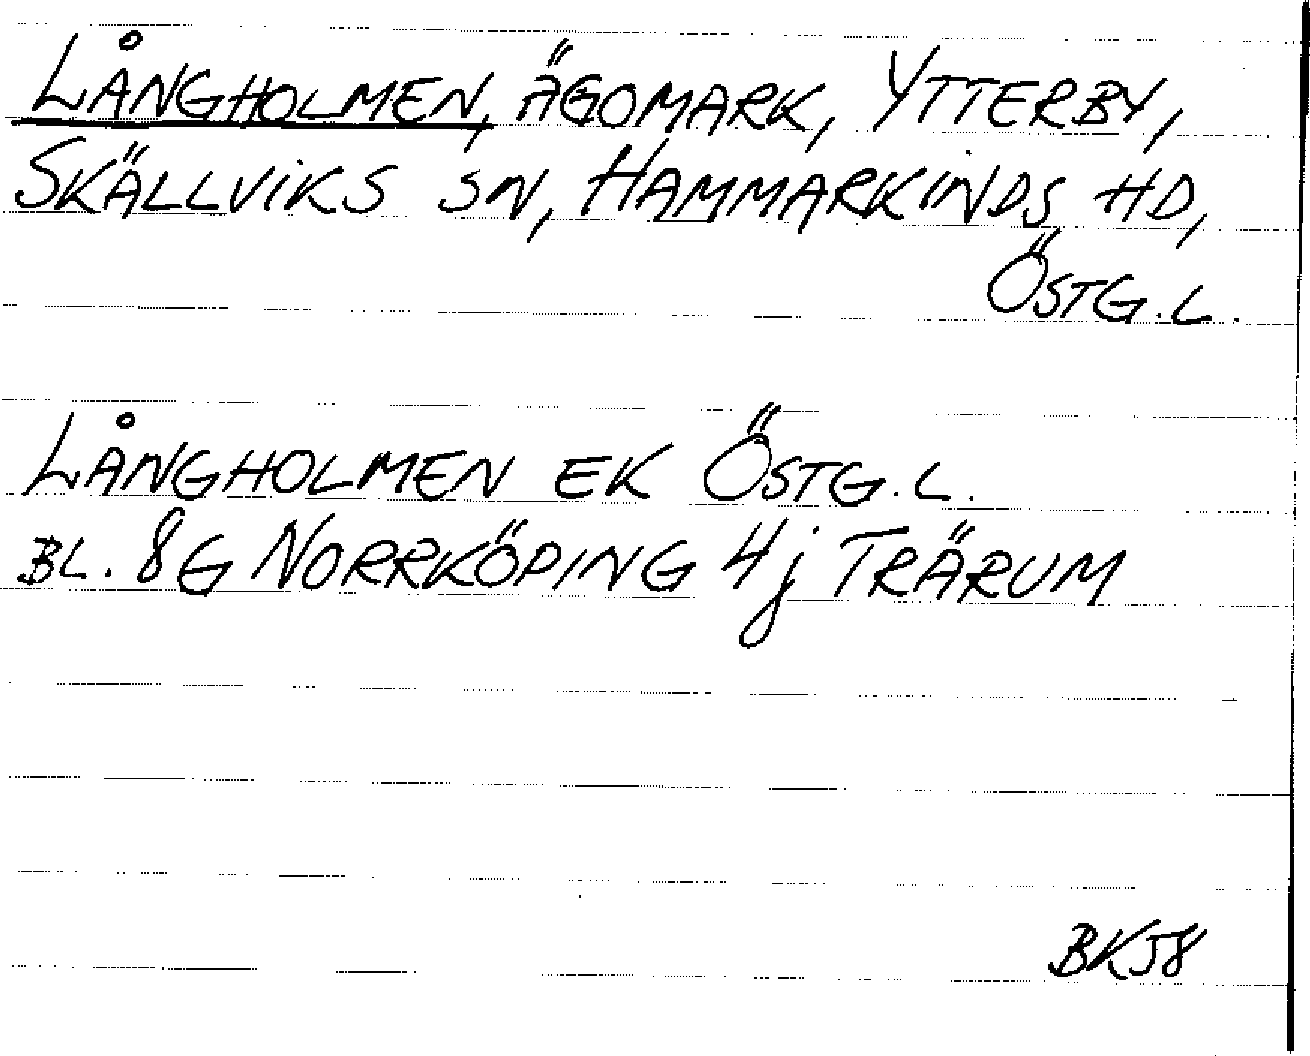 LÅNGHOLMEN, ÄGOMARK, YTTERBY,
SKÄLLVIKS SN, HAMMARKINDS HD,
ÖSTG.L.
LÅNGHOLMEN EK ÖSTG.L.
BL. 8G NORRKÖPING 4j TRÄRUM
BKJ8